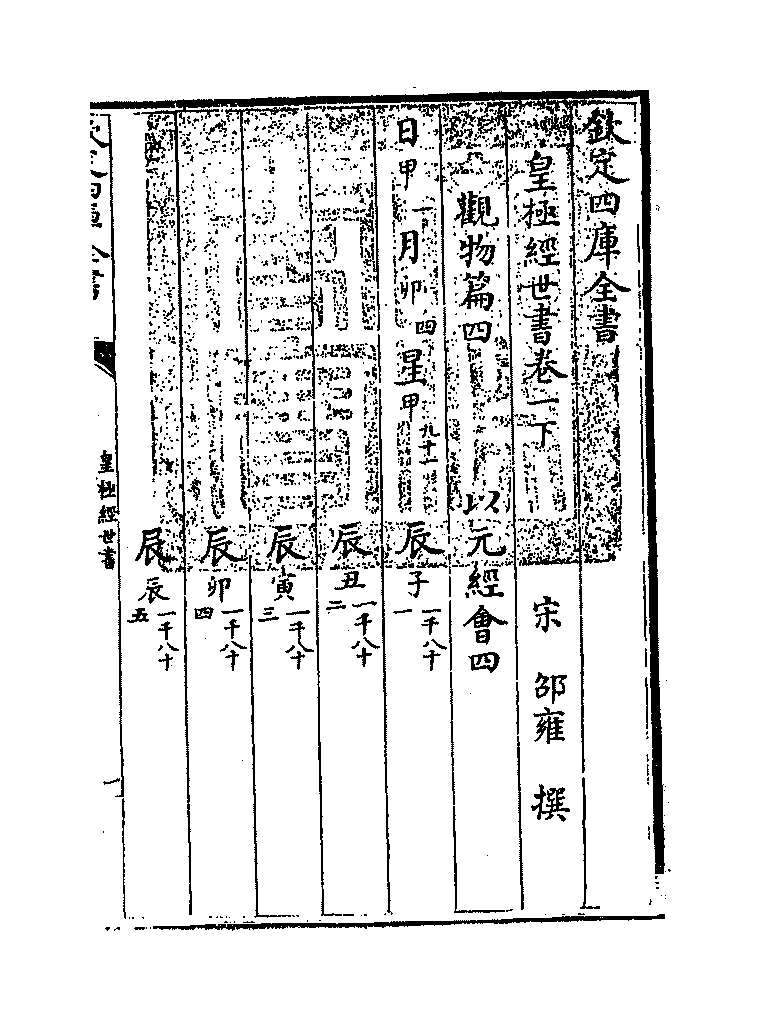 欽定四庫全書
皇極經世書卷一下
宋 邵雍 撰
觀物篇四 以元經會四
日甲一月卯四星甲九十一 辰子一千八十一
辰丑一千八十二
辰寅一千八十三
辰卯一千八十四
辰辰一千八十五
欽定四庫全書
皇極經世書
一